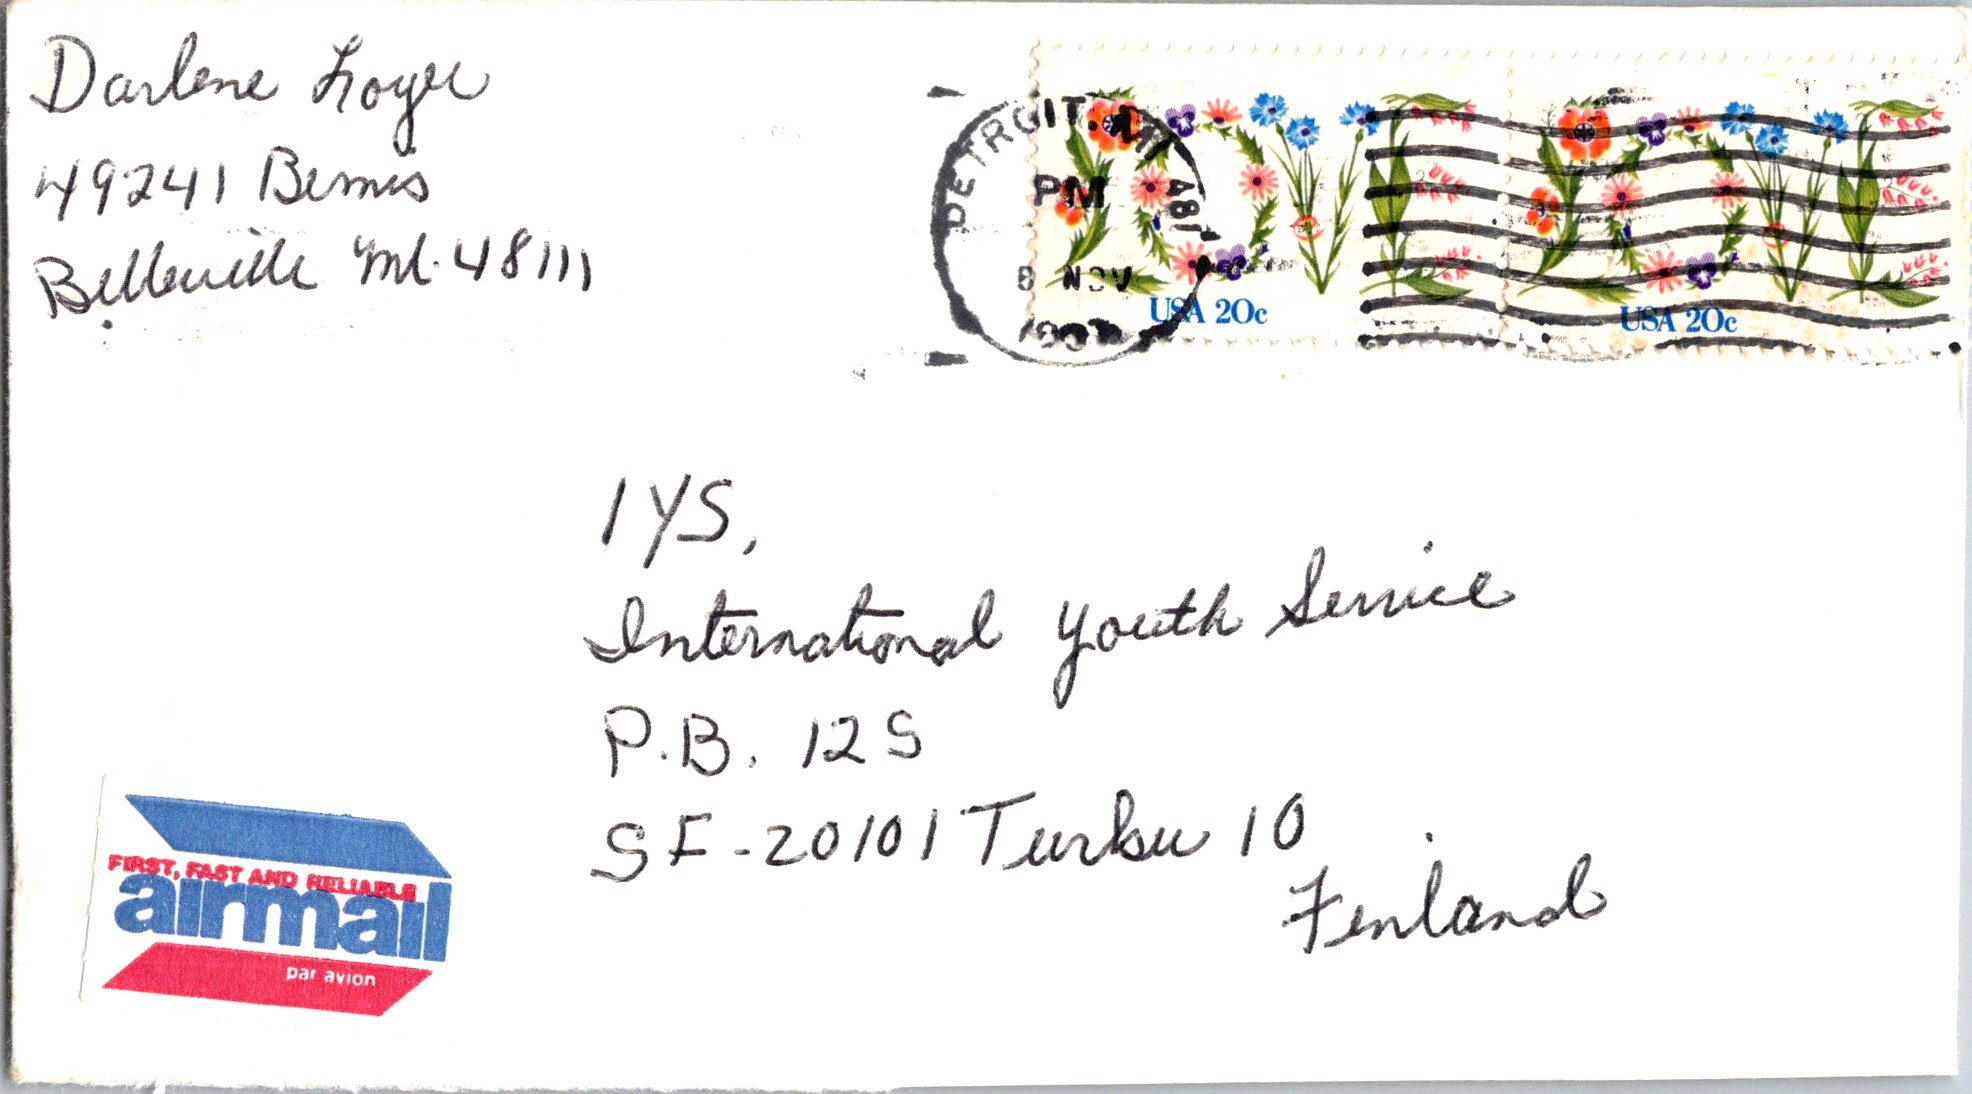 Darlene Troyer
49241 Bemis
Belleville MI. 48111
DETROIT, MI 481
PM
8 NOV
LOVE
USA 20c
LOVE
USA 20c
IYS,
International Youth Service
P.B. 125
SF-20101 Turku 10
Finland
FIRST, FAST AND RELIABLE
airmail
par avion